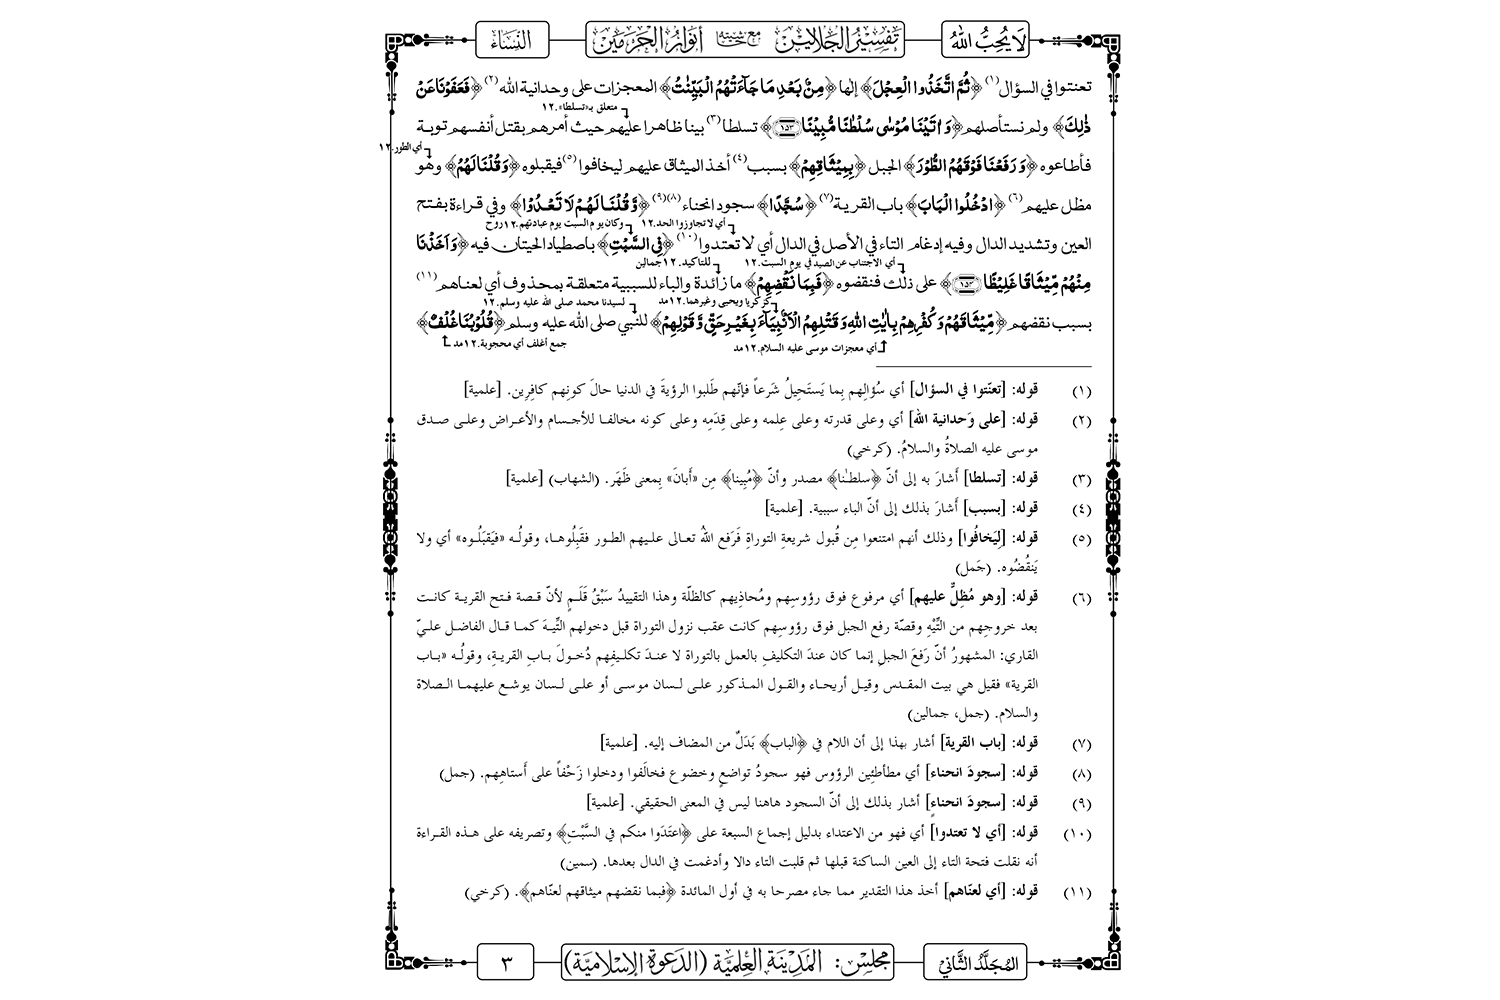 لَا يُحِبُّ اللهُ
تَفْسِيرُ الجَلَالَيْن مع حَاشِيَته أَنْوَارُ الحَرَمَيْن
النِّسَاء
تعنتوا في السؤال(١) ﴿ثُمَّ اتَّخَذُوا الْعِجْلَ﴾ إلها ﴿مِنْۢ بَعْدِ مَا جَآءَتْهُمُ الْبَيِّنٰتُ﴾ المعجزات على وحدانية الله(٢) ﴿فَعَفَوْنَا عَنْ
متعلق بـ«تسلطا».١٢
ذٰلِكَ﴾ ولم نستأصلهم ﴿وَاٰتَيْنَا مُوْسٰى سُلْطٰنًا مُّبِيْنًا ﴿١٥٣﴾﴾ تسلطا(٣) بينا ظاهرا عليهم حيث أمرهم بقتل أنفسهم توبة
أي الطور.١٢
فأطاعوه ﴿وَرَفَعْنَا فَوْقَهُمُ الطُّوْرَ﴾ الجبل ﴿بِمِيْثَاقِهِمْ﴾ بسبب(٤) أخذ الميثاق عليهم ليخافوا(٥) فيقبلوه ﴿وَقُلْنَا لَهُمُ﴾ وهو
مظل عليهم(٦) ﴿ادْخُلُوا الْبَابَ﴾ باب القرية(٧) ﴿سُجَّدًا﴾ سجود انحناء(٨)(٩) ﴿وَّقُلْنَا لَهُمْ لَا تَعْدُوْا﴾ وفي قراءة بفتح
أي لا تجاوزوا الحد.١٢ وكان يوم السبت يوم عبادتهم.١٢روح
العين وتشديد الدال وفيه إدغام التاء في الأصل في الدال أي لا تعتدوا(١٠) ﴿فِي السَّبْتِ﴾ باصطياد الحيتان فيه ﴿وَاَخَذْنَا
أي الاجتناب عن الصيد في يوم السبت.١٢ للتاكيد.١٢جمالين
مِنْهُمْ مِّيْثَاقًا غَلِيْظًا ﴿١٥٤﴾﴾ على ذلك فنقضوه ﴿فَبِمَا نَقْضِهِمْ﴾ ما زائدة والباء للسببية متعلقة بمحذوف أي لعناهم(١١)
كزكريا ويحيى وغيرهما.١٢مد لسيدنا محمد صلى الله عليه وسلم.١٢
بسبب نقضهم ﴿مِّيْثَاقَهُمْ وَكُفْرِهِمْ بِاٰيٰتِ اللهِ وَقَتْلِهِمُ الْاَنْۢبِيَآءَ بِغَيْرِ حَقٍّ وَّقَوْلِهِمْ﴾ للنبي صلى الله عليه وسلم ﴿قُلُوْبُنَا غُلْفٌ﴾
أي معجزات موسى عليه السلام.١٢مد جمع أغلف أي محجوبة.١٢مد
(١) قوله: [تعنّتوا في السؤال] أي سُؤالِهم بِما يَستَحِيلُ شَرعاً فإنّهم طَلَبوا الرؤيةَ في الدنيا حالَ كونِهم كافِرِين. [علمية]
(٢) قوله: [على وَحدانية الله] أي وعلى قدرته وعلى عِلمه وعلى قِدَمِه وعلى كونه مخالفا للأجسام والأعراض وعلى صدق
موسى عليه الصلاةُ والسلامُ. (كرخي)
(٣) قوله: [تسلطا] أَشارَ به إلى أنّ ﴿سلطٰنا﴾ مصدر وأنّ ﴿مُبِينا﴾ مِن «أَبانَ» بِمعنى ظَهَر. (الشهاب) [علمية]
(٤) قوله: [بسبب] أَشارَ بذلك إلى أنّ الباء سببية. [علمية]
(٥) قوله: [لِيَخافُوا] وذلك أنهم امتنعوا مِن قُبول شريعةِ التوراةِ فَرَفع اللهُ تعالى عليهم الطور فقَبِلُوها، وقولُه «فيَقبَلُوه» أي ولا
يَنقُضُوه. (جَمل)
(٦) قوله: [وهو مُظِلٌّ عليهم] أي مرفوع فوق رؤوسِهم ومُحاذِيهم كالظلّة وهذا التقييدُ سَبْقُ قَلَمٍ لأنّ قصة فتح القرية كانت
بعد خروجِهم من التِّيْهِ وقصّة رفع الجبل فوق رؤوسِهم كانت عقب نزول التوراة قبل دخولهم التِّيهَ كما قال الفاضل عليّ
القاري: المشهورُ أنّ رَفعَ الجبلِ إنما كان عندَ التكليفِ بالعمل بالتوراة لا عندَ تكليفِهم دُخولَ بابِ القريةِ، وقولُه «باب
القرية» فقيل هي بيت المقدس وقيل أريحاء والقول المذكور على لسان موسى أو على لسان يوشع عليهما الصلاة
والسلام. (جمل، جمالين)
(٧) قوله: [باب القرية] أشار بهذا إلى أن اللام في ﴿الباب﴾ بَدَلٌ من المضاف إليه. [علمية]
(٨) قوله: [سجودَ انحناء] أي مطأطئِين الرؤوس فهو سجودُ تواضعٍ وخضوع فخالَفوا ودخلوا زَحْفاً على أَستاهِهم. (جمل)
(٩) قوله: [سجودَ انحناءٍ] أشار بذلك إلى أنّ السجود هاهنا ليس في المعنى الحقيقي. [علمية]
(١٠) قوله: [أي لا تعتدوا] أي فهو من الاعتداء بدليل إجماع السبعة على ﴿اعتَدَوا منكم في السَّبْتِ﴾ وتصريفه على هذه القراءة
أنه نقلت فتحة التاء إلى العين الساكنة قبلها ثم قلبت التاء دالا وأدغمت في الدال بعدها. (سمين)
(١١) قوله: [أي لعنّاهم] أخذ هذا التقدير مما جاء مصرحا به في أول المائدة ﴿فبما نقضهم ميثاقهم لعنّاهم﴾. (كرخي)
المُجَلَّدُ الثَّانِيْ
مجلس: المَدِيْنَة العِلْمِيَّة (الدَّعْوَة الإسْلَامِيَّة)
٣